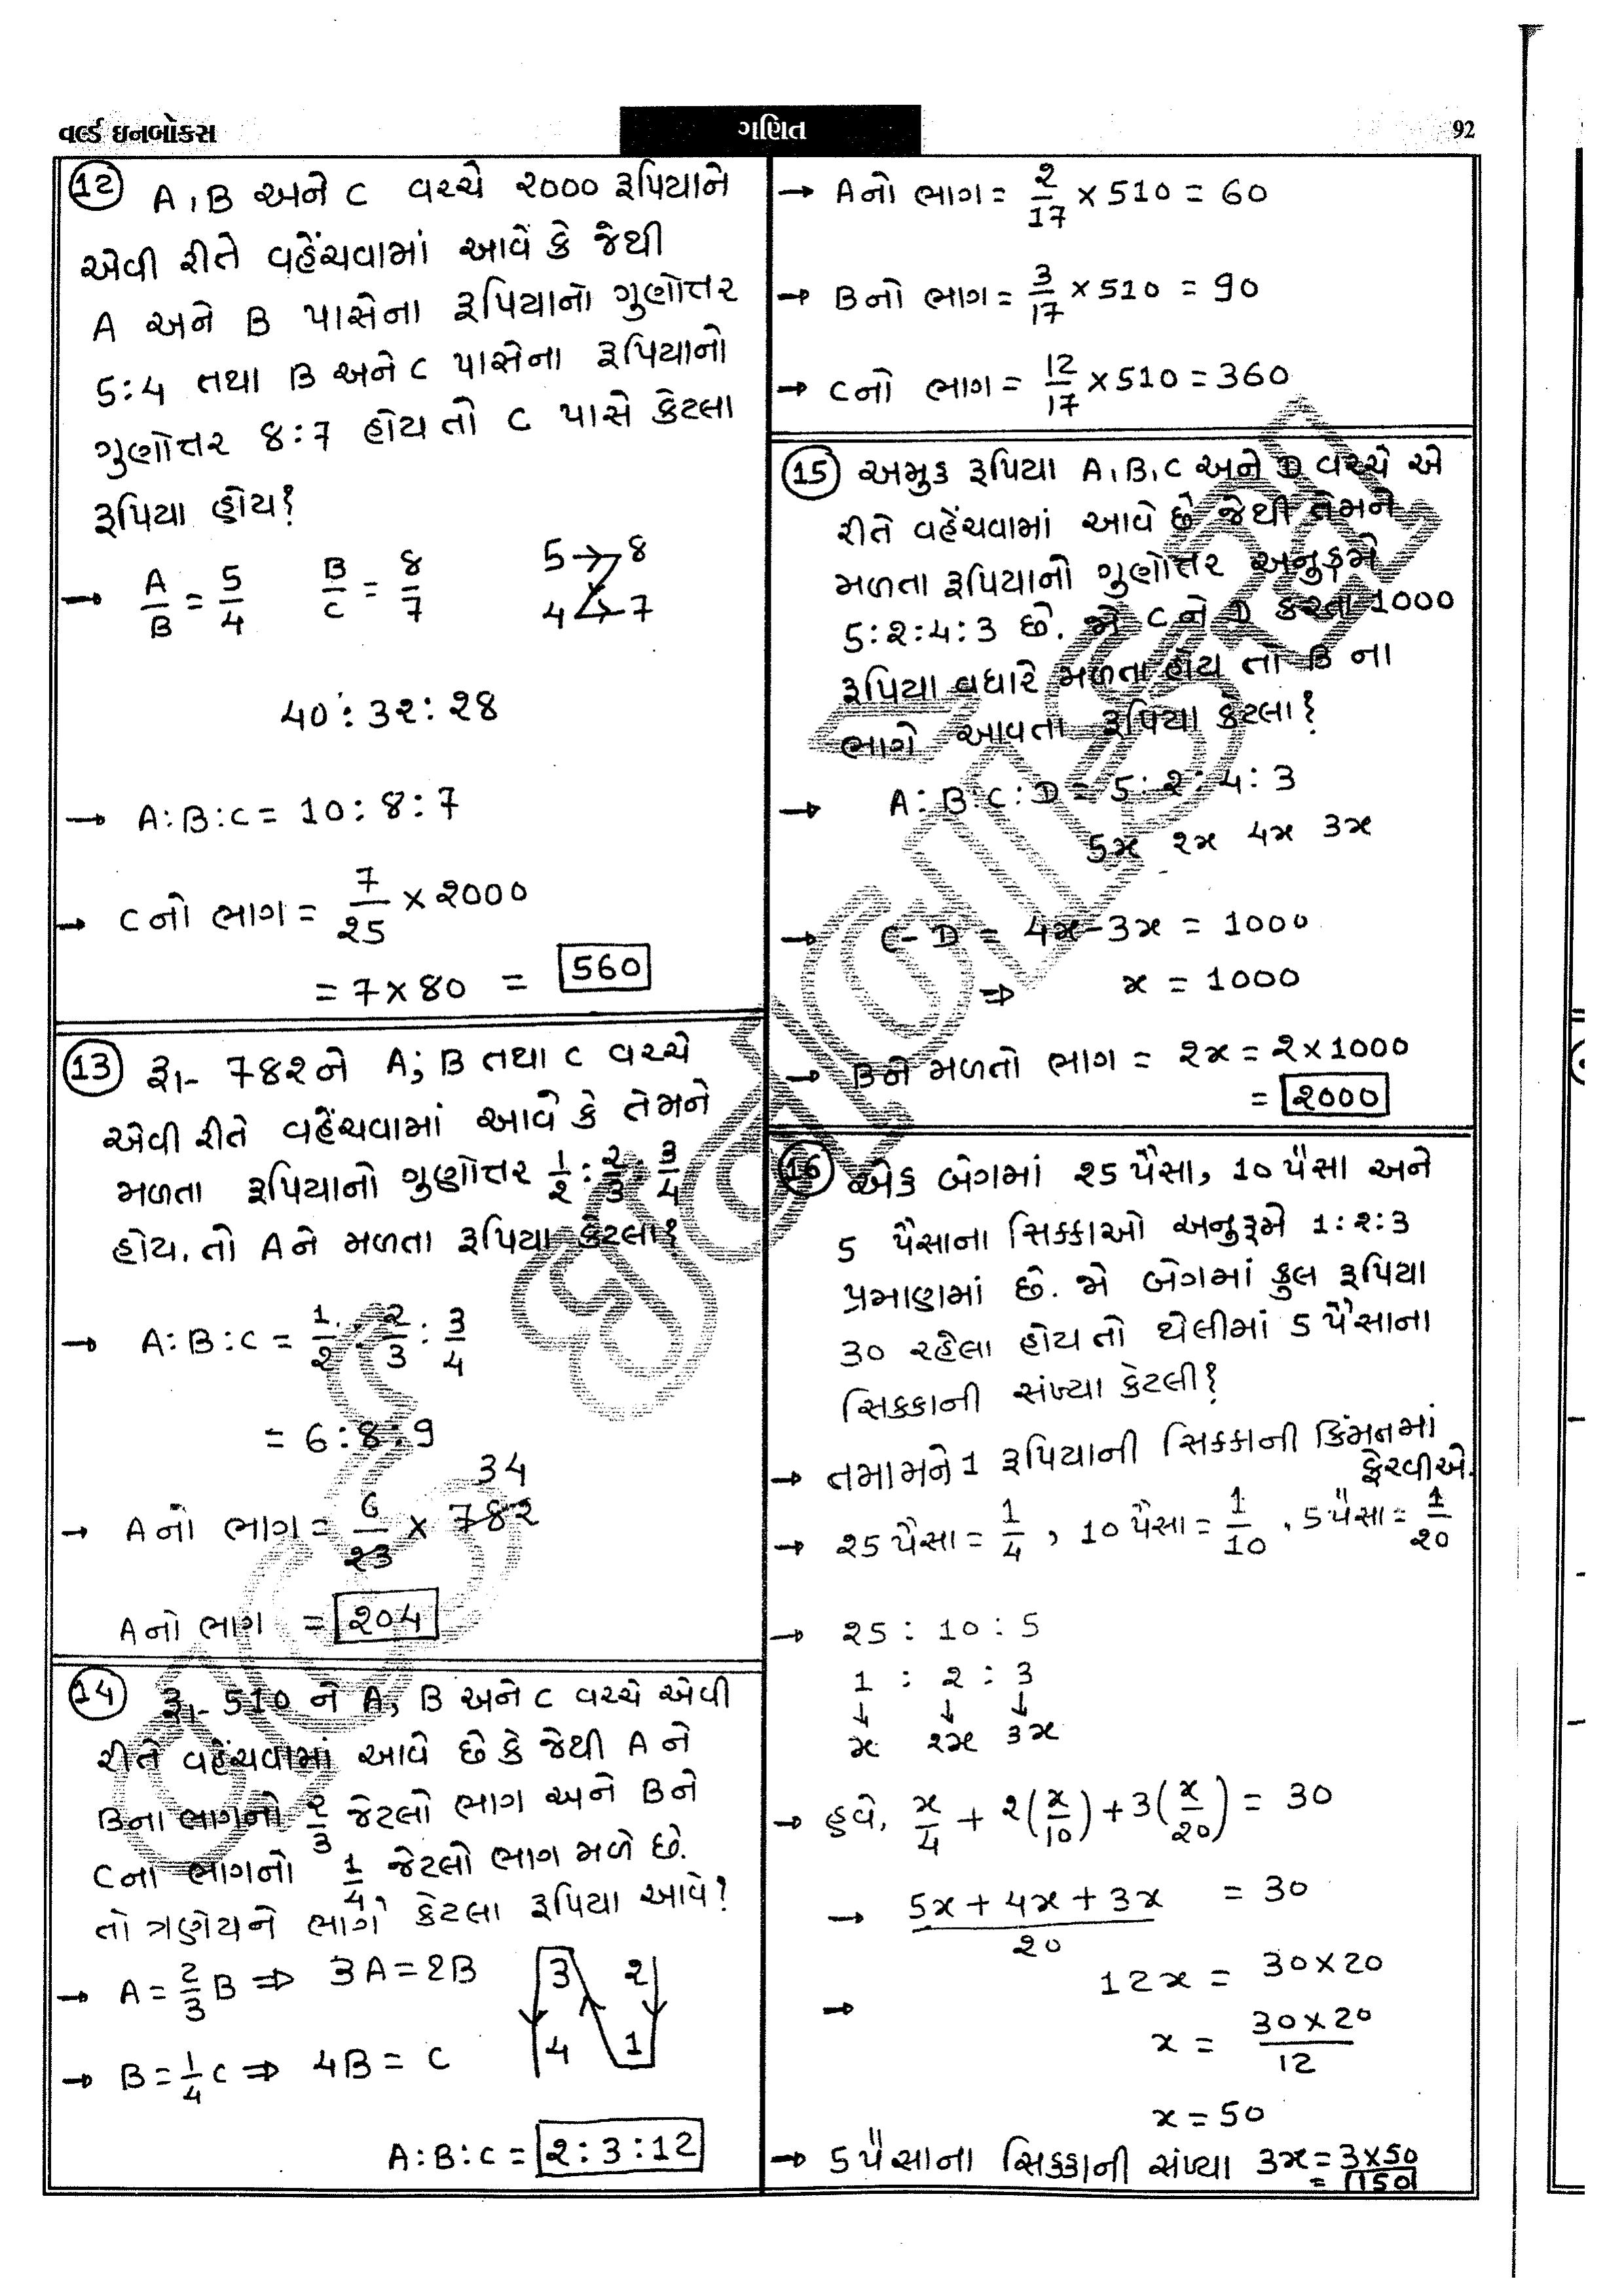 વર્લ્ડ ઇનબોક્સ
ગણિત
92
12 A, B અને C વચ્ચે ૨000 રૂપિયાને
એવી રીતે વહેંચવામાં આવે કે જેથી
A અને B પાસેના રૂપિયાનો ગુણોત્તર
5:4 તથા B અને C પાસેના રૂપિયાનો
ગુણોત્તર 8:7 હોય તો C પાસે કેટલા
રૂપિયા હોય?
→ A/B = 5/4 B/C = 8/7 5 → 8
4 → 7
40 : 3૨ : ૨8
→ A:B:C = 10:8:7
→ C નો ભાગ = 7/૨5 × ૨000
= 7 × 80 = 560
13 રૂ।- 78૨ ને A; B તથા C વચ્ચે
એવી રીતે વહેંચવામાં આવે કે તેમને
મળતા રૂપિયાનો ગુણોત્તર 1/૨ : ૨/3 : 3/4
હોય. તો A ને મળતા રૂપિયા કેટલા?
→ A:B:C = 1/૨ : ૨/3 : 3/4
= 6:8:9
34
→ A નો ભાગ = 6/૨3 × 78૨
A નો ભાગ = ૨04
14 રૂ।- 510 ને A, B અને C વચ્ચે એવી
રીતે વહેંચવામાં આવે છે કે જેથી A ને
B ના ભાગનો ૨/3 જેટલો ભાગ અને B ને
C ના ભાગનો 1/4 જેટલો ભાગ મળે છે.
તો ત્રણેયને ભાગે કેટલા રૂપિયા આવે?
→ A = 2/3 B ⇒ 3A = 2B 3 ૨
→ B = 1/4 C ⇒ 4B = C 4 1
A:B:C = ૨:3:12
→ A નો ભાગ = ૨/17 × 510 = 60
→ B નો ભાગ = 3/17 × 510 = 90
→ C નો ભાગ = 12/17 × 510 = 360
15 અમુક રૂપિયા A, B, C અને D વચ્ચે એ
રીતે વહેંચવામાં આવે છે જેથી તેમને
મળતા રૂપિયાનો ગુણોત્તર અનુક્રમે
5:૨:4:3 છે. જો C ને D કરતા 1000
રૂપિયા વધારે મળતા હોય તો B ના
ભાગે આવતા રૂપિયા કેટલા?
→ A:B:C:D = 5:૨:4:3
5x ૨x 4x 3x
→ C-D = 4x-3x = 1000
⇒ x = 1000
→ B ને મળતો ભાગ = ૨x = ૨×1000
= ૨000
16 એક બેગમાં ૨5 પૈસા, 10 પૈસા અને
5 પૈસાના સિક્કાઓ અનુરૂમે 1:૨:3
પ્રમાણમાં છે. જો બેગમાં કુલ રૂપિયા
30 રહેલા હોય તો થેલીમાં 5 પૈસાના
સિક્કાની સંખ્યા કેટલી?
→ તમામને 1 રૂપિયાની સિક્કાની કિંમતમાં
ફેરવીએ.
→ ૨5 પૈસા = 1/4, 10 પૈસા = 1/10, 5 પૈસા = 1/૨0
→ ૨5 : 10 : 5
1 : ૨ : 3
↓ ↓ ↓
x ૨x 3x
→ હવે, x/4 + ૨(x/10) + 3(x/૨0) = 30
→ (5x + 4x + 3x)/૨0 = 30
→ 12x = 30×20
x = 30×20/12
x = 50
→ 5 પૈસાના સિક્કાની સંખ્યા 3x = 3×50
= 150